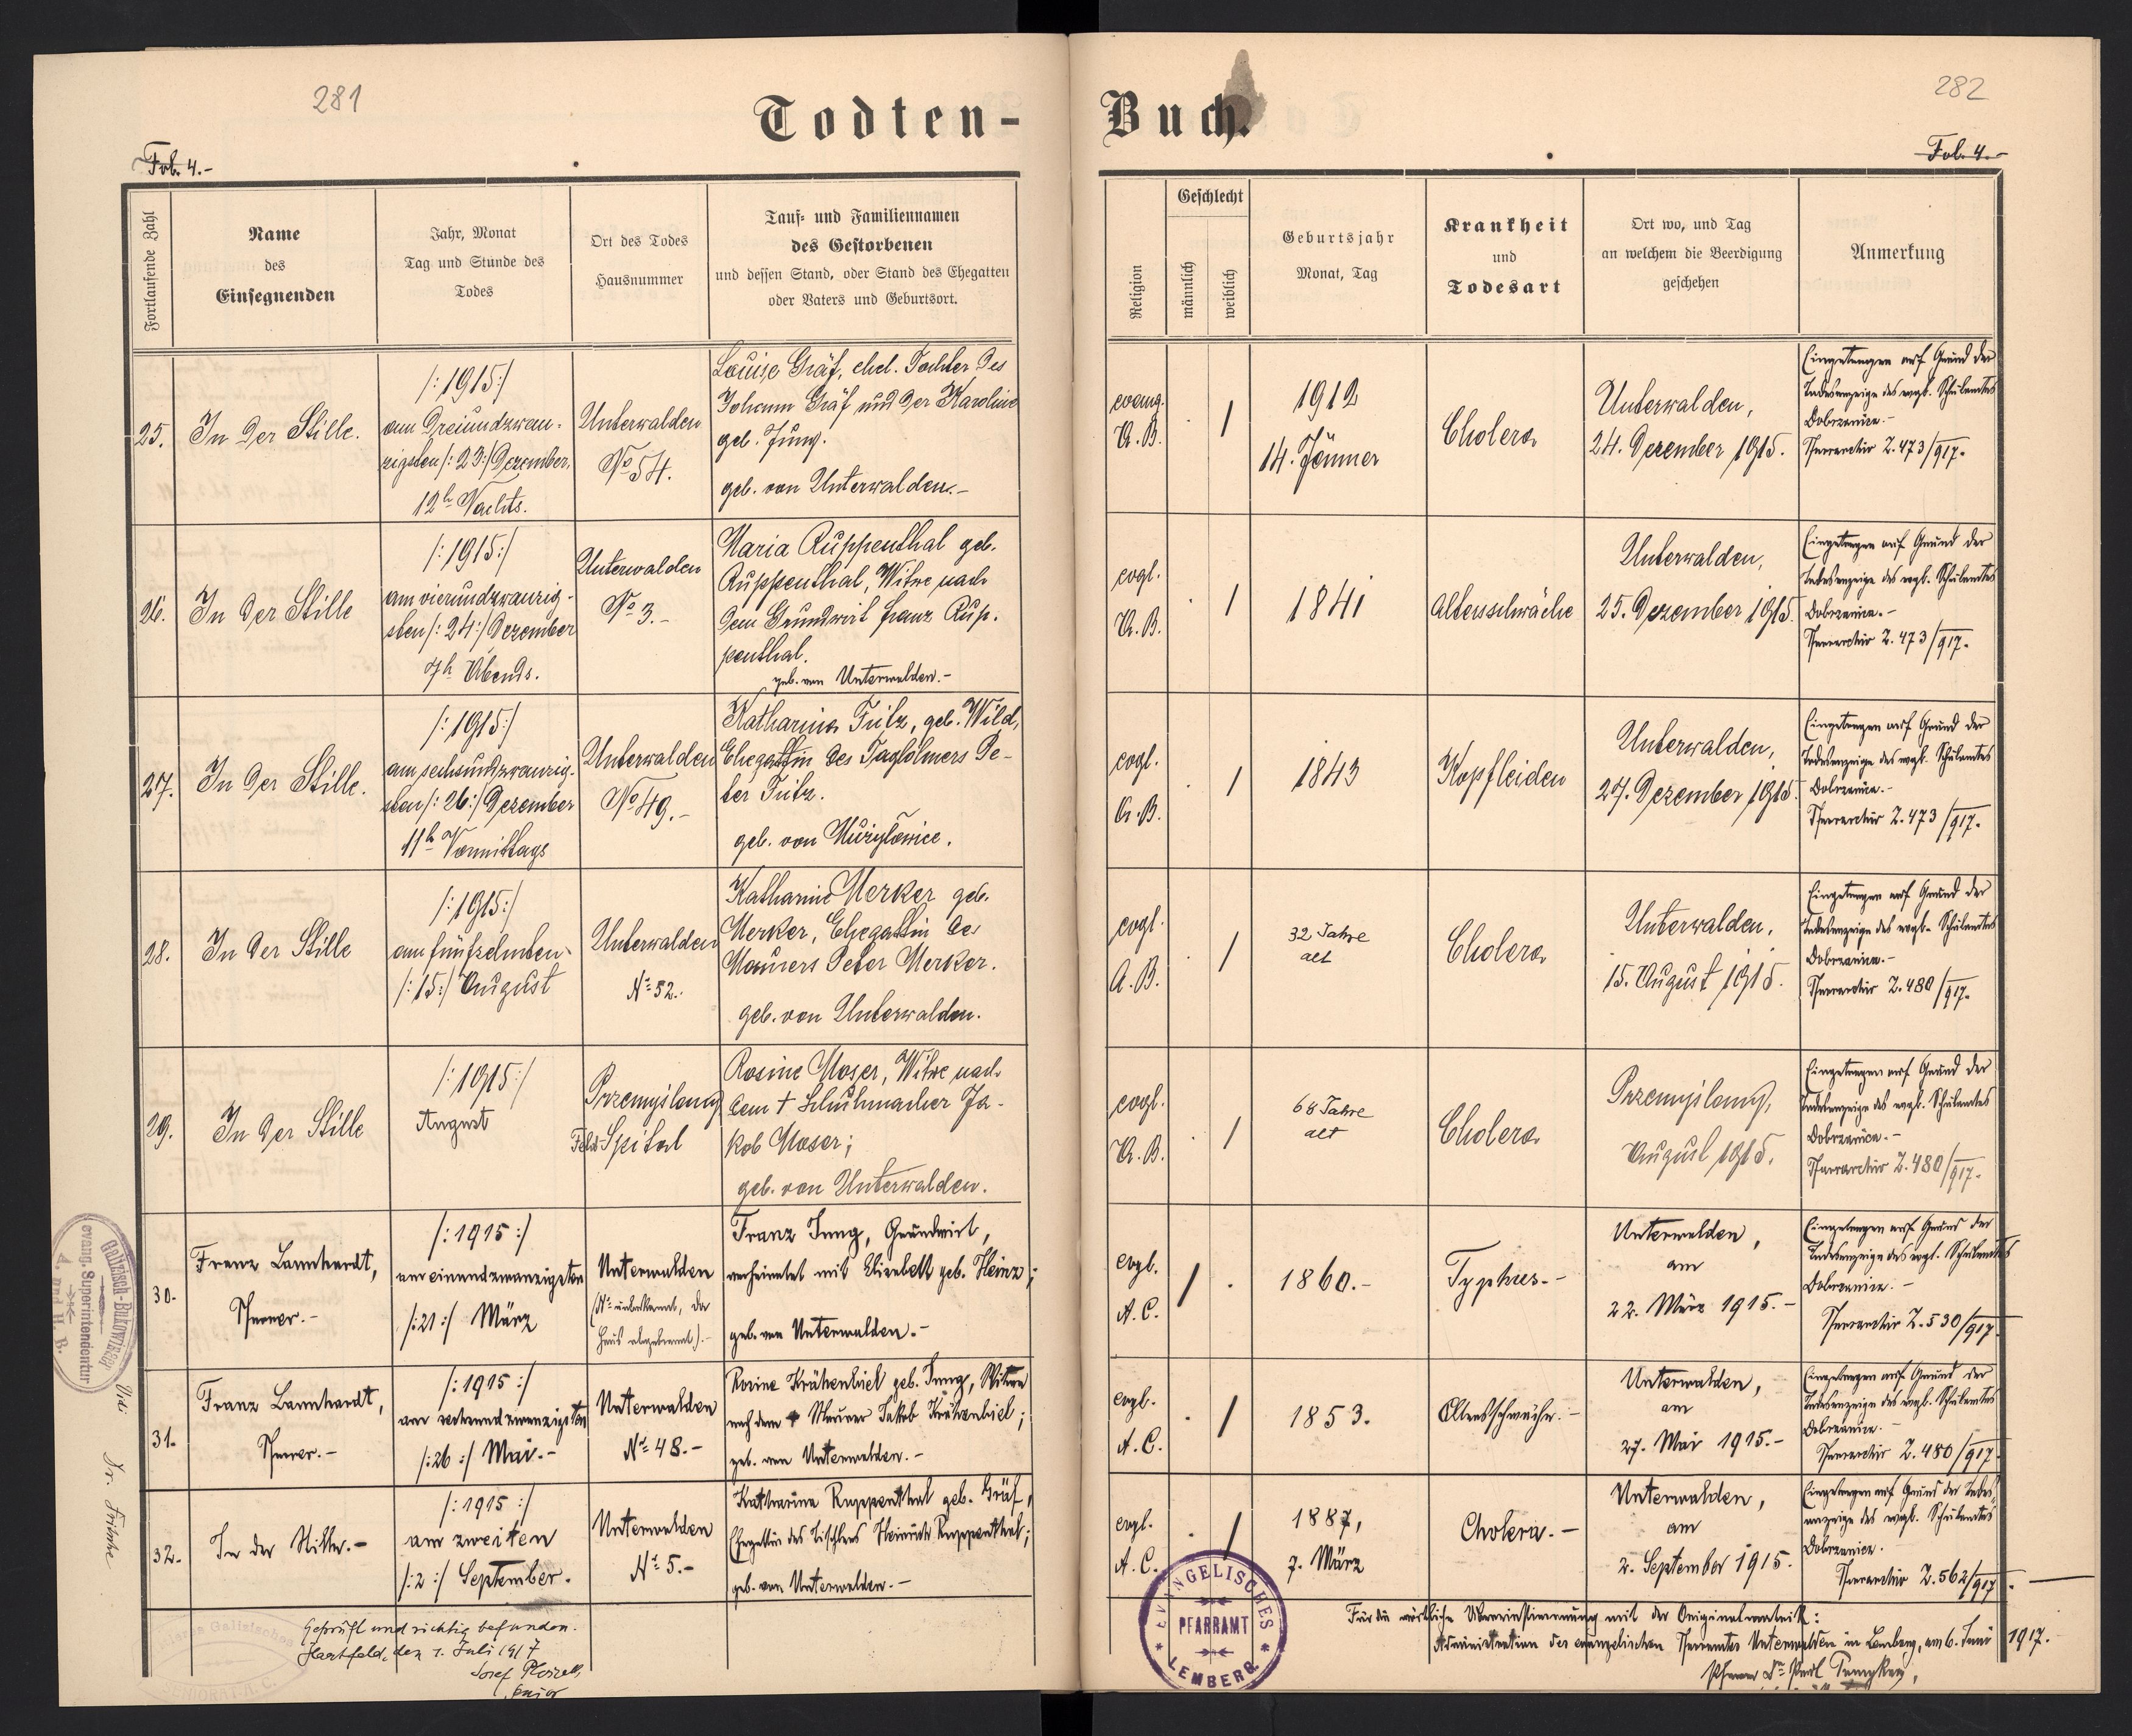 281
282
Todten-
Buch.
Fol. 4.-
Fol. 4.-
Fortlaufende Zahl
Name
des
Einsegnenden
Jahr, Monat
Tag und Stunde des
Todes
Ort des Todes
Hausnummer
Tauf- und Familiennamen
des Gestorbenen
und dessen Stand, oder Stand des Ehegatten
oder Vaters und Geburtsort.
Religion
Geschlecht
männlich
weiblich
Geburtsjahr
Monat, Tag
Krankheit
und
Todesart
Ort wo, und Tag
an welchem die Beerdigung
geschehen
Anmerkung
25.
In der Stille.
/:1915:/
am Dreiundzwan-
zigsten /:23:/ Dezember,
12h Nachts.
Unterwalden
No 54.
Louise Gräf, ehel. Tochter des
Johann Gräf und der Karoline
geb. Jung.
geb. von Unterwalden.-
evang.
A.B.
. /
1912
14. Jänner
Cholera
Unterwalden,
24. Dezember 1915.
Eingetragen auf Grund der
Todesanzeige des evgl. Schulamtes
Dobrzanica.-
Pfarramt Z. 473/917.
26.
In der Stille
/:1915:/
am vierundzwanzig-
sten /:24:/ Dezember
7h Abends.
Unterwalden
No 3.-
Maria Ruppenthal geb.
Ruppenthal, Witwe nach
dem Grundwirt Franz Rup-
penthal.
geb. von Unterwalden.-
evgl.
A.B.
. /
1841
Altersschwäche
Unterwalden,
25. Dezember 1915.
Eingetragen auf Grund der
Todesanzeige des evgl. Schulamtes
Dobrzanica.-
Z. 473/917.
27.
In der Stille.
/:1915:/
am sechsundzwanzig-
sten /:26:/ Dezember
11h Vormittags
Unterwalden
No 49.-
Katharina geb. Wild,
Ehegattin des Taglöhners Pe-
ter
geb. von
evgl.
A.B.
. /
1843
Kopfleiden
Unterwalden,
27. Dezember 1915.
Eingetragen auf Grund der
Todesanzeige des evgl. Schulamtes
Dobrzanica.-
Z. 473/917.
28.
In der Stille
/:1915:/
am fünfzehnten
/:15:/ August
Unterwalden
No 52.
Katharine Merker geb.
Merker, Ehegattin des
Maurers Peter Merker.
geb. von Unterwalden.
evgl.
A.B.
. /
32 Jahre
alt
Cholera
Unterwalden,
15. August 1915.
Eingetragen auf Grund der
Todesanzeige des evgl. Schulamtes
Dobrzanica.-
Z. 480/917.
29.
In der Stille
/:1915:/
August
Przemyslany
Feld-Spital
Rosine Moser, Witwe nach
dem † Schuhmacher Ja-
kob Moser;
geb. von Unterwalden.
evgl.
A.B.
. /
68 Jahre
alt
Cholera
Przemyslany,
August 1915.
Eingetragen auf Grund der
Todesanzeige des evgl. Schulamtes
Dobrzanica.-
Z. 480/917.
30.
Franz Lannhardt,
Pfarrer.-
/:1915:/
am einundzwanzigsten
/:21:/ März
Unterwalden
(No unbekannt, da
Haus abgebrannt).-
Franz Jung, Grundwirt,
verheiratet mit Elisabeth geb. Heinz;
geb. von Unterwalden.-
evgl.
A.C.
/ .
1860.-
Typhus.-
Unterwalden,
am
22. März 1915.-
Eingetragen auf Grund der
Todesanzeige des evgl. Schulamtes
Dobrzanica.-
Z. 530/917
31.
Franz Lannhardt,
Pfarrer.-
/:1915:/
am sechsundzwanzigsten
/:26:/ Mai.-
Unterwalden
No 48.-
Rosine Krähenbiel geb. Jung, Witwe
nach dem † Maurer Jakob Krähenbiel;
geb. von Unterwalden.-
evgl.
A.C.
. /
1853.
Altersschwäche.-
Unterwalden,
am
27. Mai 1915.-
Eingetragen auf Grund der
Todesanzeige des evgl. Schulamtes
Dobrzanica.-
Z. 480/917
32.
In der Stille.-
/:1915:/
am zweiten
/:2:/ September.
Unterwalden
No 5.-
Katharina Ruppenthal geb. Gräf,
Ehegattin des Tischlers Heinrich Ruppenthal;
geb. von Unterwalden.-
evgl.
A.C.
. /
1887,
7. März
Cholera.-
Unterwalden,
am
2. September 1915.
Eingetragen auf Grund der Todes-
anzeige des evgl. Schulamtes
Dobrzanica.
Z. 562/917.
Geprüft und richtig befunden.
Hartfeld, den 7. Juli 1917
Josef
Senior
Für die wörtliche Übereinstimmung mit der Originalmatrik:
Administration des evangelischen Pfarramtes Unterwalden in Lemberg, am 6. Juni 1917.
Pfarrer Dr. Paul
EVANGELISCHES
PFARRAMT
LEMBERG.
Galizisch-Bukowinaer
evang. Superintendentur
A. und H. B.
Vidi